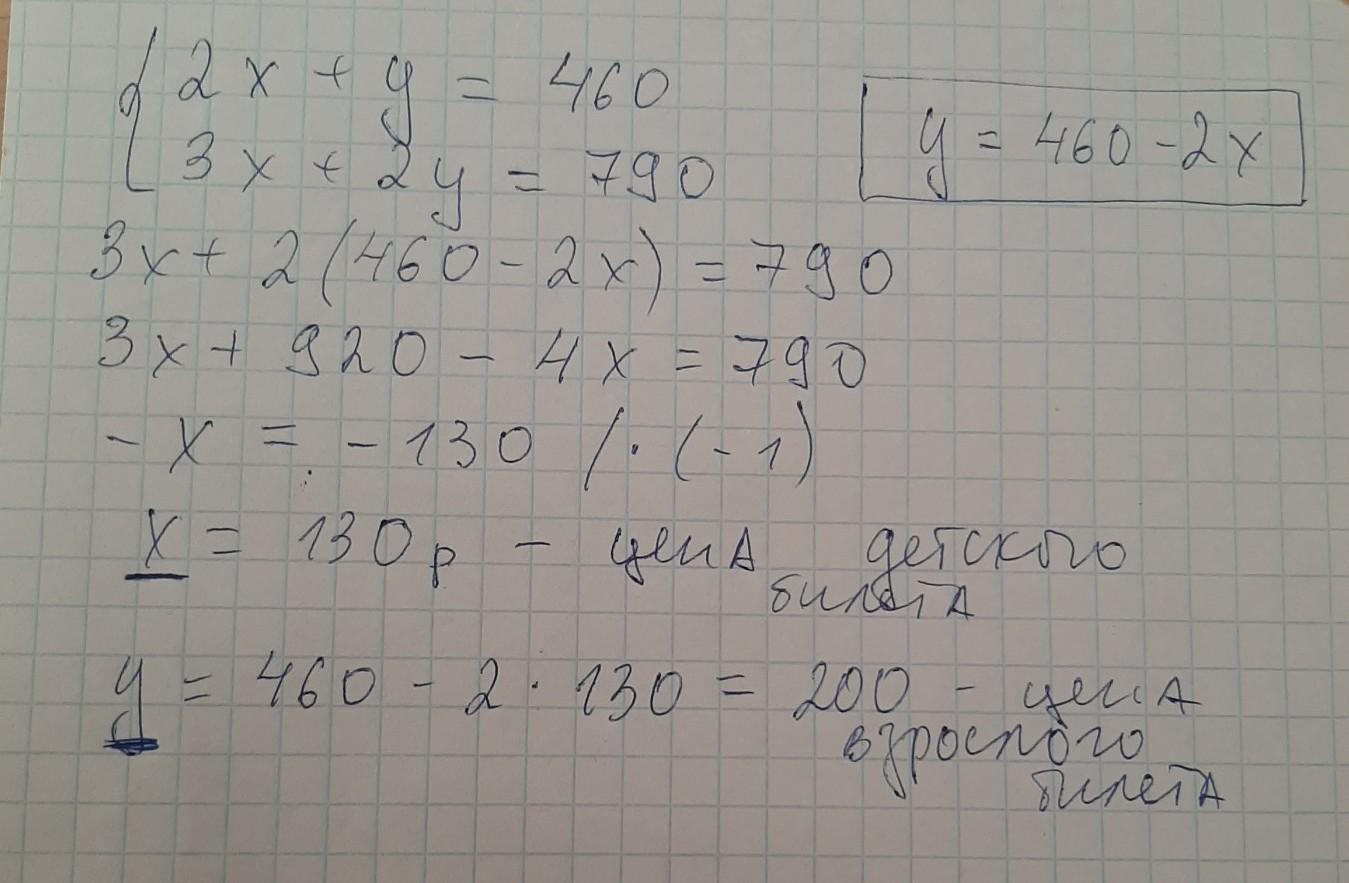 2x + y = 460
3x + 2y = 790
y = 460 - 2x
3x + 2(460 - 2x) = 790
3x + 920 - 4x = 790
- x = - 130 / · (- 1)
x = 130р - цена детского
билета
y = 460 - 2 · 130 = 200 - цена
взрослого
билета